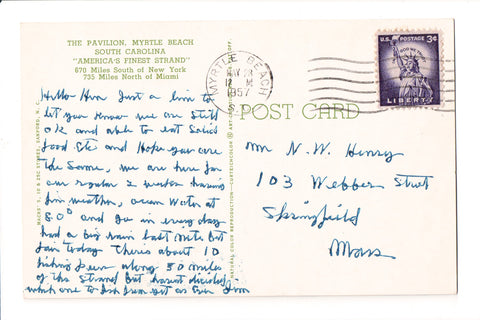 THE PAVILION, MYRTLE BEACH
SOUTH CAROLINA
"AMERICA'S FINEST STRAND"
670 Miles South of New York
735 Miles North of Miami
Just a line to
let you know we are still
OK and able to eat Solid
food Etc and Hope you are
the Same, we are here for
our regular 2 weeks having
fine weather, ocean Water at
80° and go in every day
had a big rain last Nite But
fair today Theirs about 10
fishing piers along 50 miles
of this Strand But havent decided
which one to fish from yet as Ever Jim
MYRTLE BEACH
MAY
12 M
1957
S.C.
U.S. POSTAGE 3¢
IN GOD WE TRUST
LIBERTY
POST CARD
N. W. Henry
103 Webber Street
Springfield
Mass
NATURAL COLOR REPRODUCTION—CURTEICHCOLOR
5, 10 & 25C STORES, SANFORD, N. C.